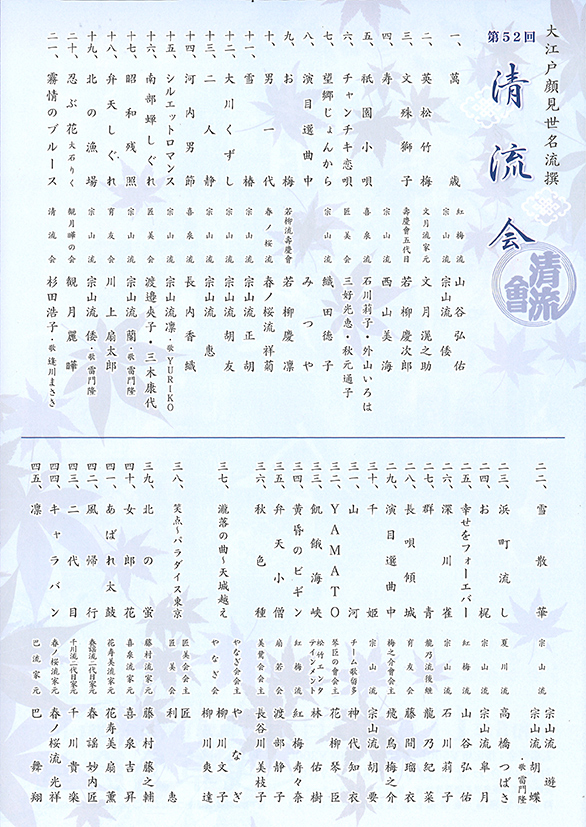 大江戸顔見世名流撰
第52回
清流会
清流會
一、萬歳 紅梅流 山谷弘佑 宗山流 宗山流倭
二、英松竹梅 文月流家元 文月滉之助
三、文殊獅子 壽慶會五代目 若柳慶次郎
四、寿 宗山流 西山美海
五、祇園小唄 喜泉流 石川莉子・外山いろは
六、チャンチキ恋唄 匠美会 三好光恵・秋元通子
七、望郷じょんから 宗山流 織田徳子
八、演目選曲中 みつや
九、お梅 若柳流壽慶會 若柳慶凛
十、男一代 春ノ桜流 春ノ桜流祥菊
十一、雪椿 宗山流 宗山流正胡
十二、大川くずし 宗山流 宗山流胡友
十三、二人静 宗山流 宗山流恵
十四、河内男節 喜泉流 長内香織
十五、シルエットロマンス 宗山流 宗山流凛・歌YURIKO
十六、南部蝉しぐれ 匠美会 渡邉央子・三木康代
十七、昭和残照 宗山流 宗山流蘭・歌 雷門隆
十八、弁天しぐれ 育友会 川上扇太郎
十九、北の漁場 宗山流 宗山流倭・歌 雷門隆
二十、忍ぶ花 大石りく 観月曄の会 観月麗曄
二一、霧情のブルース 清流会 杉田浩子・歌 逢川まさき
二二、雪散華 宗山流 宗山流遊 宗山流胡蝶・歌 雷門隆
二三、浜町流し 夏川流 高橋つばさ
二四、お梶 宗山流 宗山流皐月
二五、幸せをフォーエバー 紅梅流 山谷弘佑
二六、深川雀 宗山流 石川莉子
二七、群青 龍乃流後継 龍乃紀菜
二八、長唄傾城 育友会 藤間瑠衣
二九、演目選曲中 梅之介會会主 飛鳥梅之介
三十、千姫 宗山流 宗山流胡要
三一、山河 チーム歌留多 神代知衣
三二、YAMATO 琴臣の會会主 花柳琴臣
三三、飢餓海峡 松竹エンタテインメント 林佑樹
三四、黄昏のビギン 紅梅流 紅梅寿々奈
三五、弁天小僧 扇若会 渡部静子
三六、秋色種 美鷺会会主 長谷川美枝子
三七、瀧落の曲〜天城越え やなぎ会会主 やなぎ会 やなぎ 柳川文子 柳川爽達
三八、笑点〜パラダイス東京 匠美会会主 匠美会 匠 利恵
三九、北の蛍 藤村流家元 藤村藤之輔
四十、女郎花 喜泉流家元 喜泉吉昇
四一、あばれ太鼓 花寿美流家元 花寿美扇薫
四二、風帰行 春謡流二代目家元 春謡妙内匠
四三、二代目 千川流二代目家元 千川貴楽
四四、キャラバン 春ノ桜流家元 春ノ桜流光祥
四五、凛 巴流家元 巴舞翔